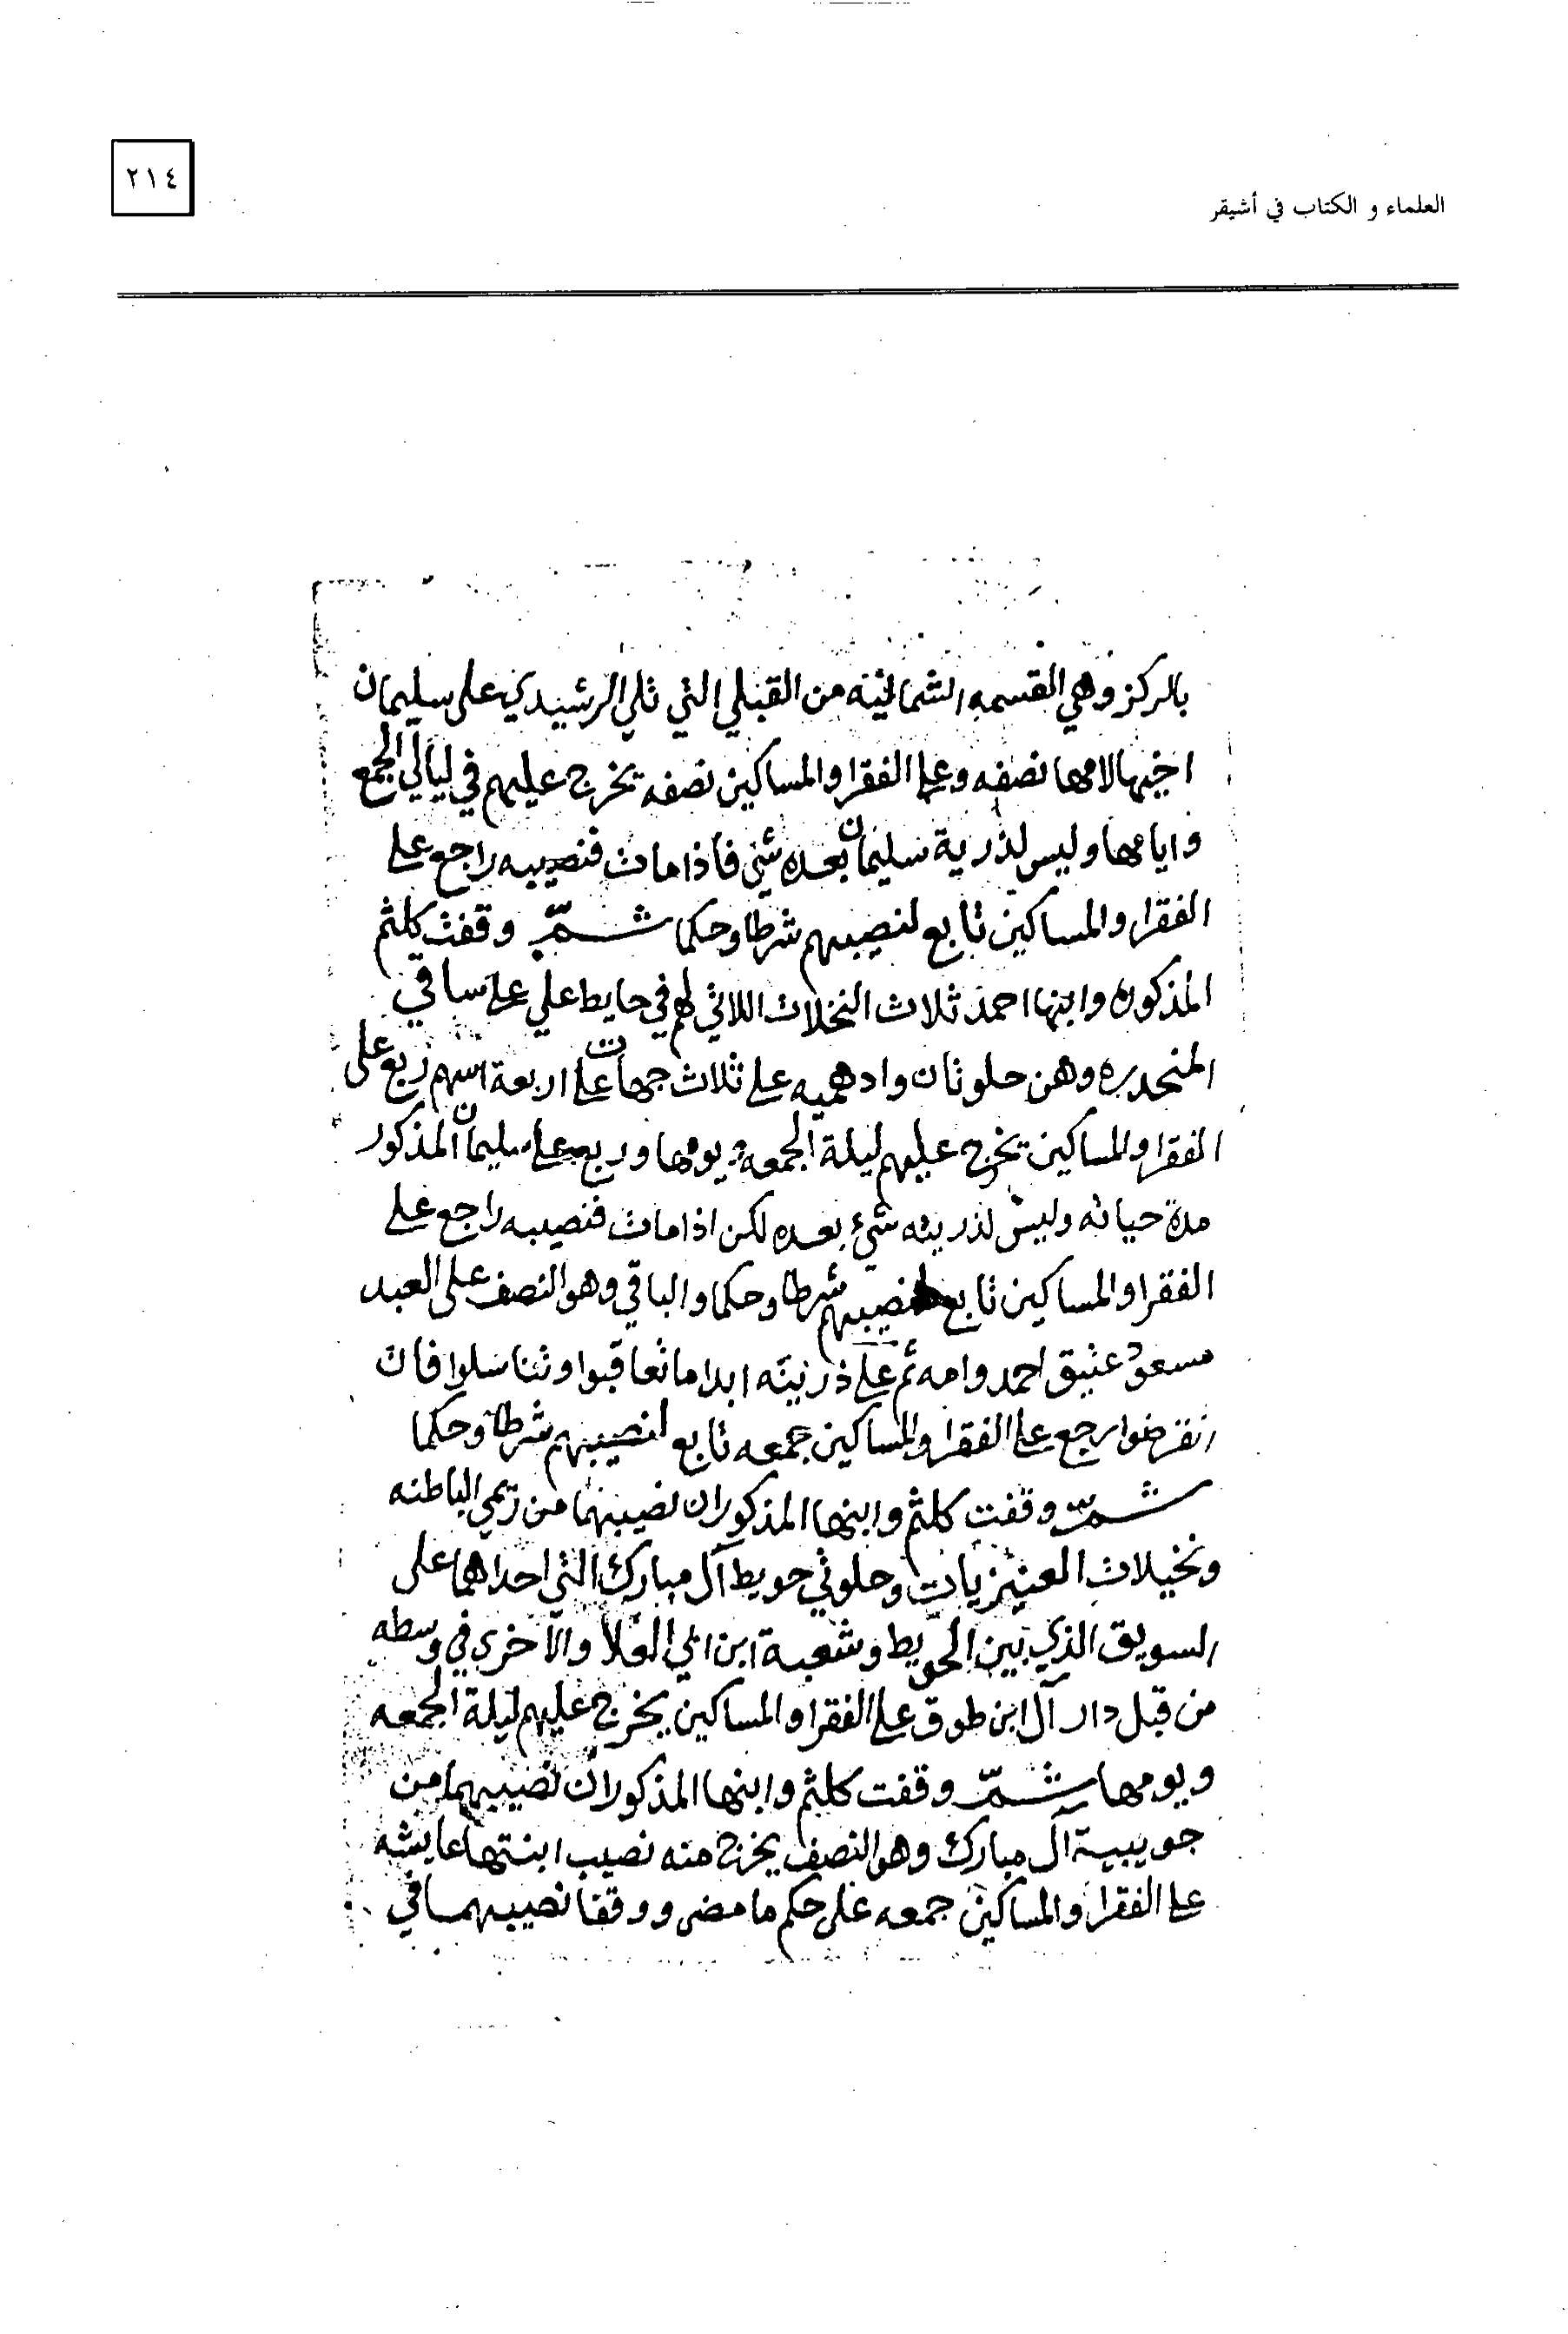 ٢١٤
العلماء و الكتاب في أشيقر
بالركز وهي القسمه الشمالية من القبلي التي تلي الرشيدي على سليمان
اخيها لامها نصفه وعلى الفقرا والمساكين نصفه تخرج عليهم في ليالي الجمع
وايامها وليس لذرية سليمان بعده شي فاذا مات فنصيبه راجع على
الفقرا والمساكين تابع لنصيبهم شرطا وحكما ثم وقفت كلثم
المذكوره وابنها احمد ثلاث النخلات اللاتي لهم في حايط علي على ساقي
المنحدره وهن حلوتان وادهميه على ثلاث جهات على اربعة اسهم ربع على
الفقرا والمساكين تخرج عليهم ليلة الجمعه ويومها وربع على سليمان المذكور
مدة حياته وليس لذريته شيء بعده لكن اذا مات فنصيبه راجع على
الفقرا والمساكين تابع لنصيبهم شرطا وحكما والباقي وهو النصف على العبد
مسعود عتيق احمد وامه ثم على ذريته ابدا ما تعاقبوا وتناسلوا فان
انقرضوا رجع على الفقرا والمساكين جمعه تابع لنصيبهم شرطا وحكما
ثم وقفت كلثم وابنها المذكوران نصيبهما من ريمي الباطنه
ونخيلات العنيزيات وحلوتي حويط آل مبارك التي احداهما على
السويق الذي بين الحويط وشعبة ابن ابي العلا والاخرى في وسطه
من قبل دار آل ابن طوق على الفقرا والمساكين يخرج عليهم ليلة الجمعه
ويومها ثم وقفت كلثم وابنها المذكوران نصيبهما من
جويبية آل مبارك وهو النصف يخرج منه نصيب ابنتها عايشه
على الفقرا والمساكين جمعه على حكم ما مضى ووقفا نصيبهما في